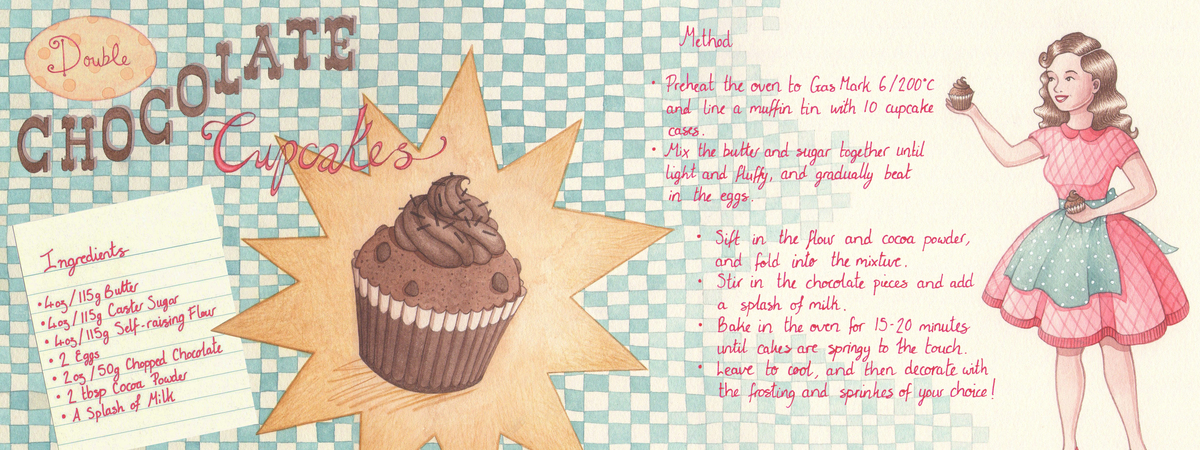 Double
CHOCOLATE
Cupcakes
Ingredients
• 4oz/115g Butter
• 4oz/115g Caster Sugar
• 4oz/115g Self-raising Flour
• 2 Eggs
• 2oz/50g Chopped Chocolate
• 2 tbsp Cocoa Powder
• A Splash of Milk
Method
• Preheat the oven to Gas Mark 6/200°c
and line a muffin tin with 10 cupcake
cases.
• Mix the butter and sugar together until
light and fluffy, and gradually beat
in the eggs.
• Sift in the flour and cocoa powder,
and fold into the mixture.
• Stir in the chocolate pieces and add
a splash of milk.
• Bake in the oven for 15-20 minutes
until cakes are springy to the touch.
• Leave to cool, and then decorate with
the frosting and sprinkes of your choice!